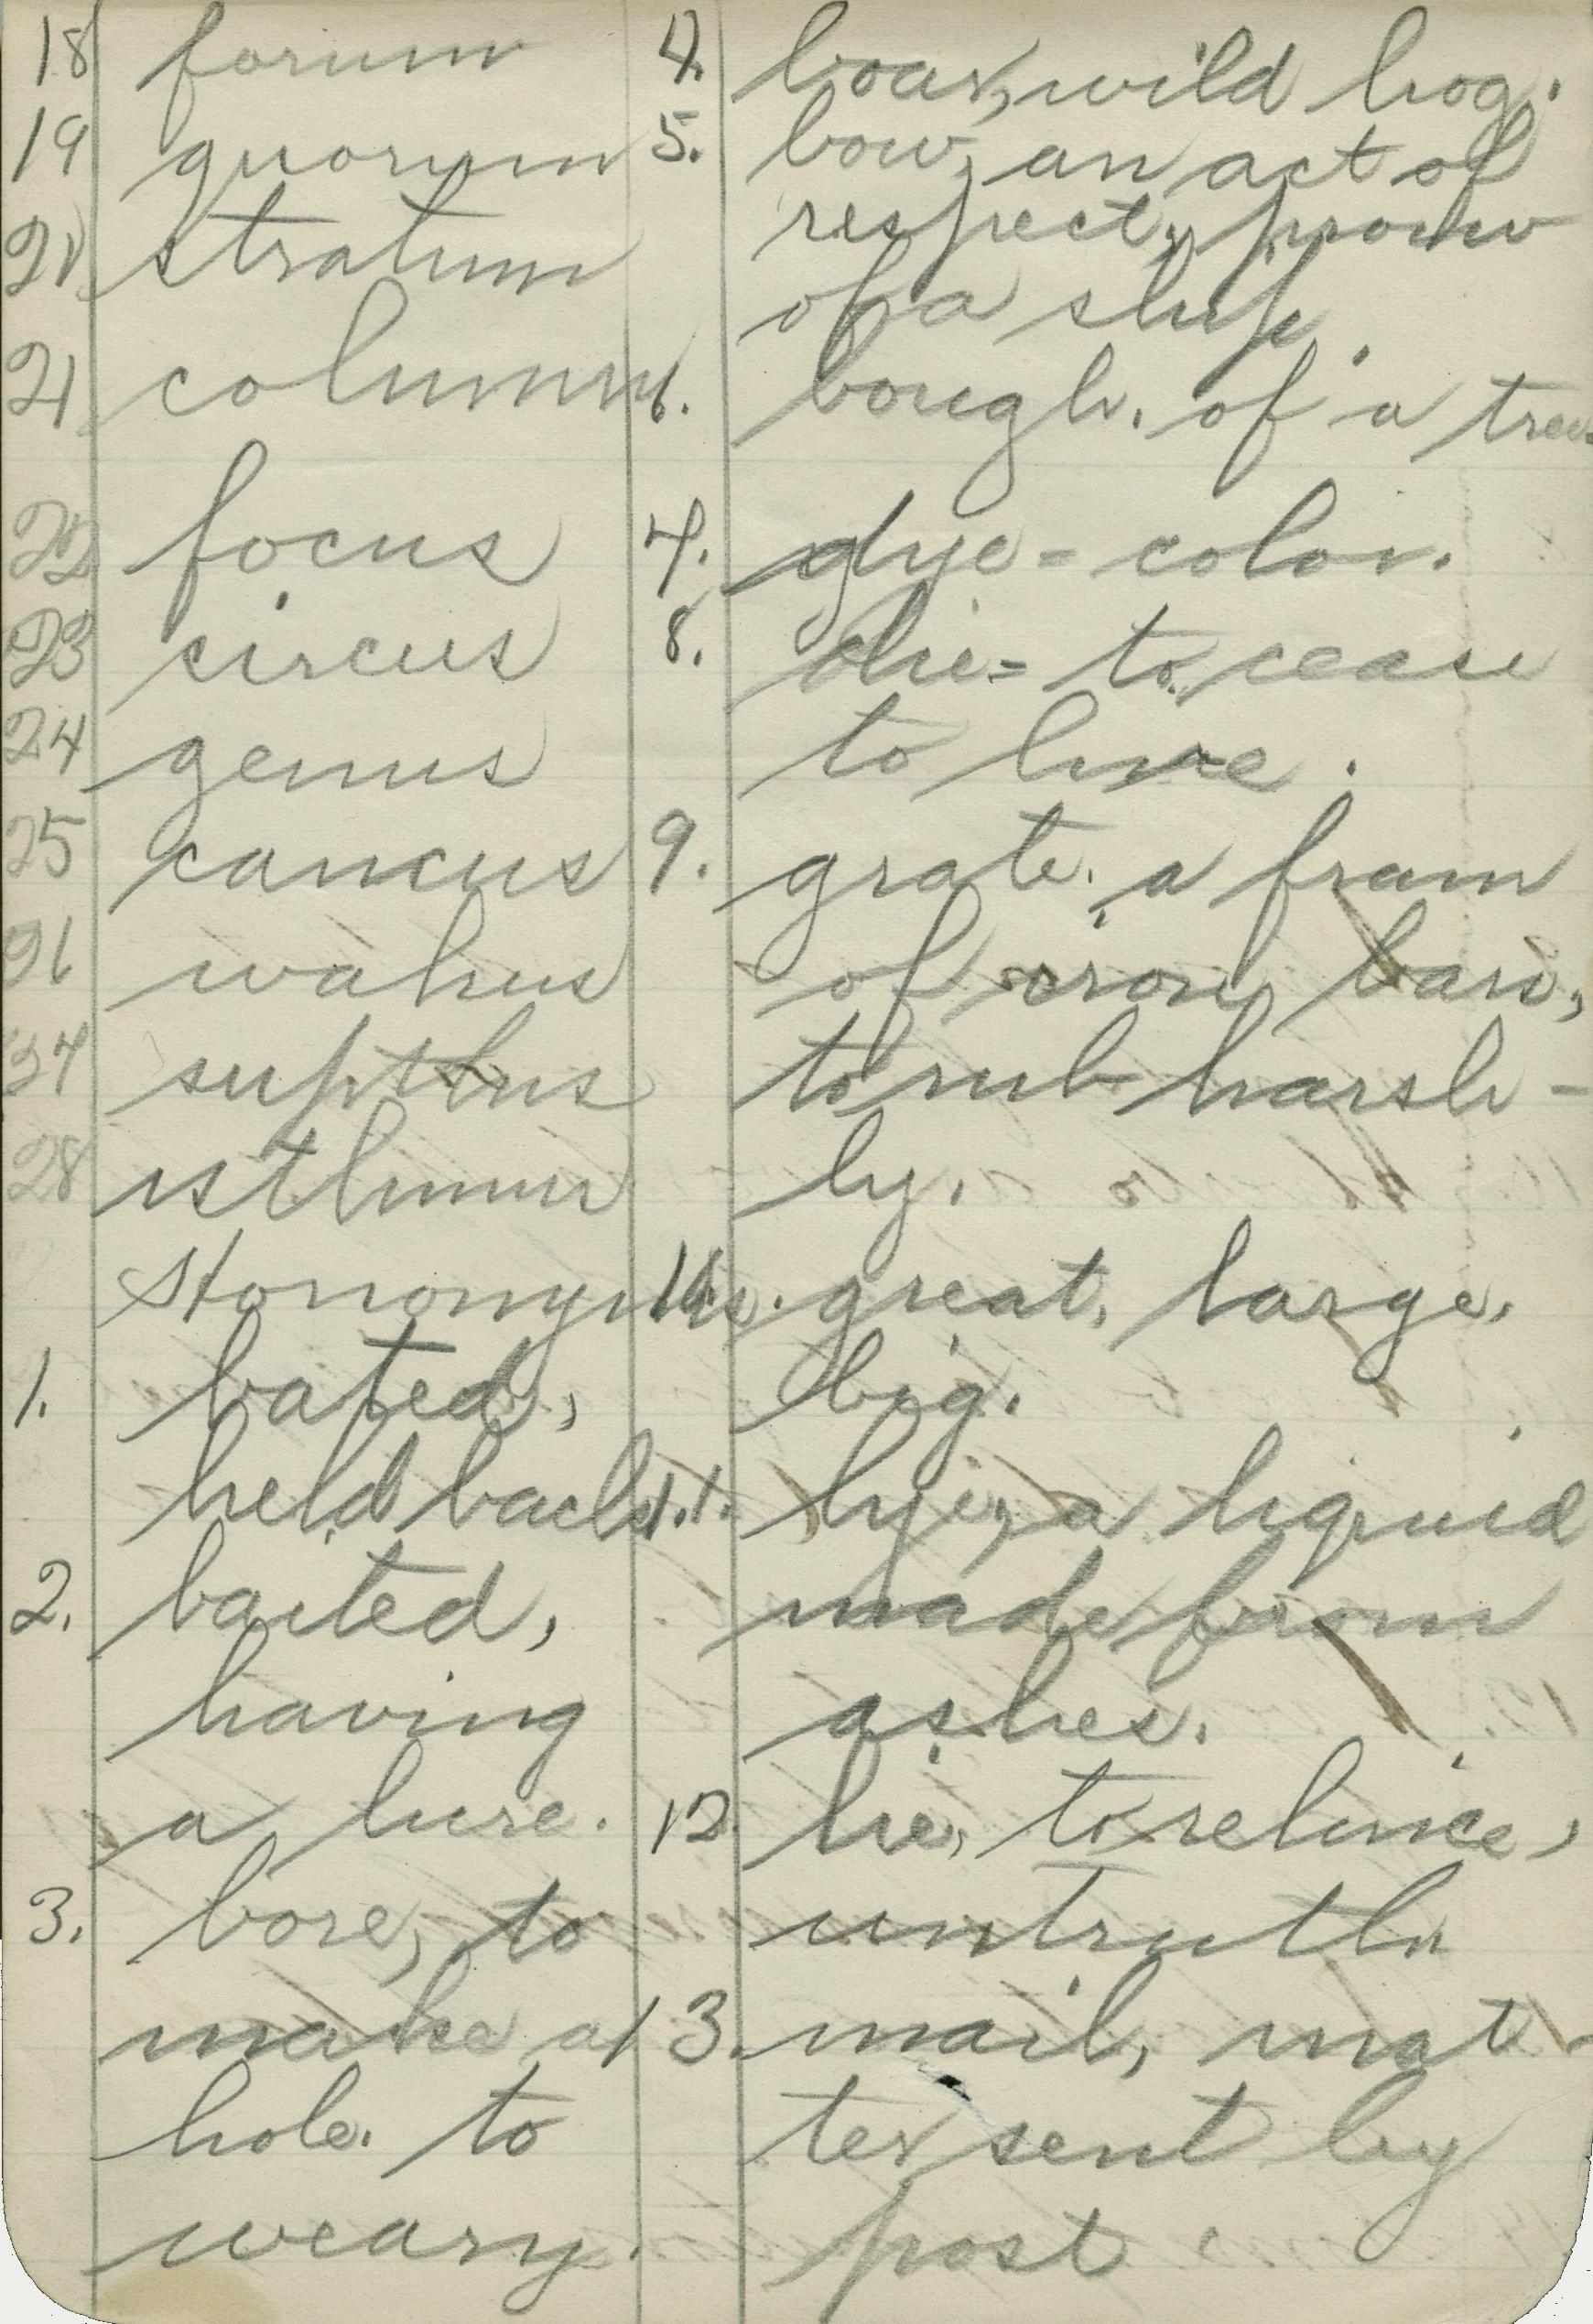 18 forum
19 quorum
20 stratum
21 column
22 focus
23 circus
24 genus
25 caucus
26 walrus
27
28 isthmus
1. bated,
held back.
2. baited,
having
a lure.
3. bore, to
make a
hole. to
weary.
4. boar, wild hog.
5. bow, an act of
respect, prow
of a ship.
6. bough. of a tree.
7. dye = color.
8. die = to cease
to live.
9. grate. a fram
of iron bars,
to rub harsh-
ly.
10. great, large,
big.
11. lye, a liquid
made from
ashes.
12. lie, to
untruth
13. mail, mat-
ter sent by
post